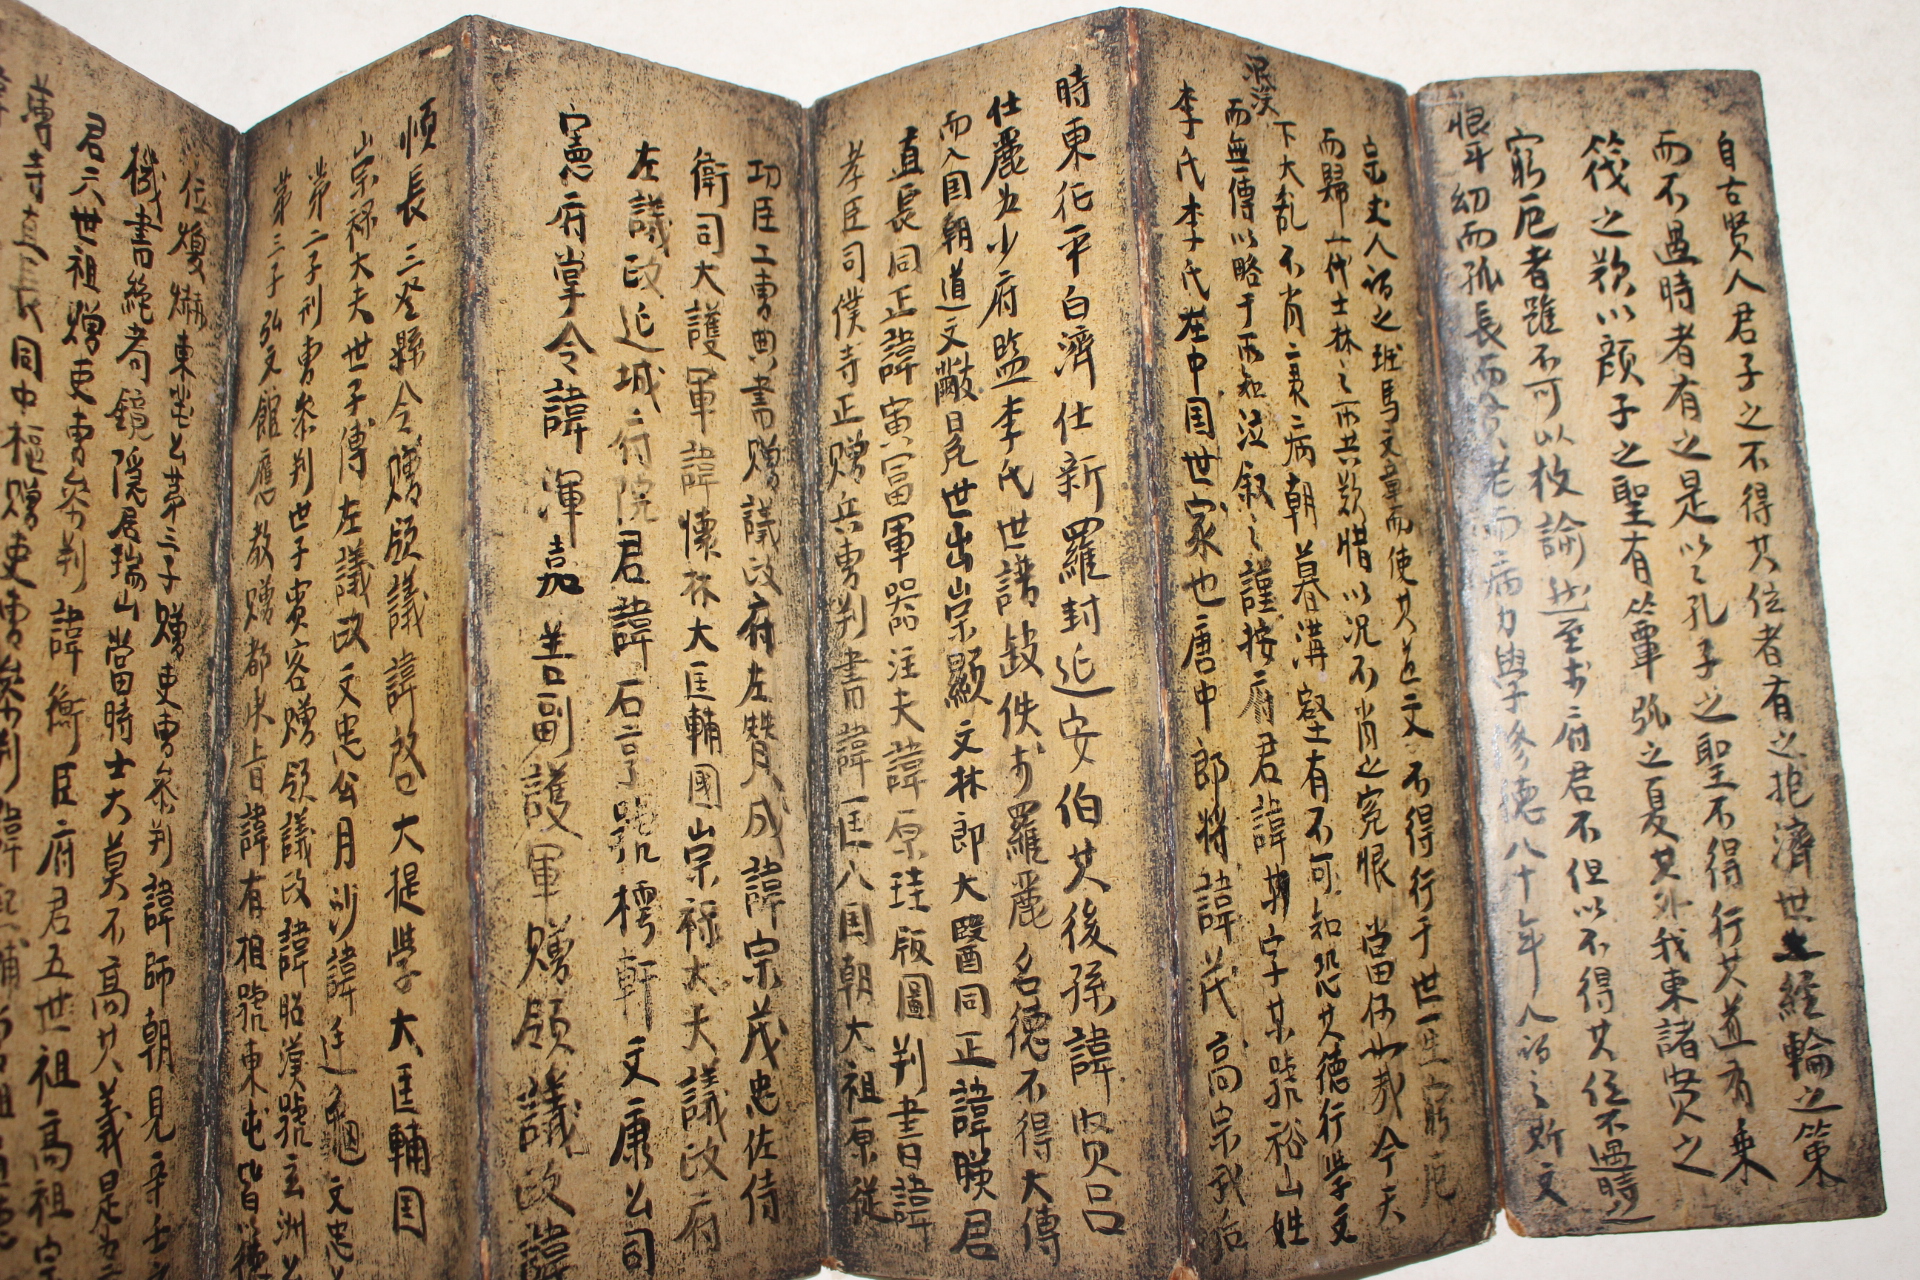 自古賢人君子之不得其位者有之抱濟世之經輪之策
而不遇時者有之是以孔子之聖不得行其道有乘
筏之歎以顔子之聖有簞瓢之憂其外我東諸賢之
窮厄者雖不可以枚論然至於府君不但以不得其位不遇時之
恨耳幼而孤長而貧老而病力學修德八十年人謂之斯文
宗丈人謂之班馬文章而使其道文不得行于世一生窮厄
而歸一代士林之所共歎惜以況不肖之寃恨當何如哉今夫
下大亂不肖二衰二病朝暮溝壑有不可知恐其德行學文
泯沒
而無傳以略于所知泣叙之謹按府君諱某字某號裕山姓
李氏李氏在中国世家也唐中郎將諱茂高宗武后
時東征平百濟仕新羅封延安伯其後孫諱賢呂
仕麗為少府監李氏世譜缺佚於羅麗名德不得大傳
而入国朝道文敝日見世出崇顯文林郎大醫同正諱暎君
直長同正諱寅富軍器注夫諱原珪版圖判書諱
孝臣司僕寺正贈兵曹判書諱匡入国朝大祖原從
功臣工曹典書贈議政府左贊成諱宗茂忠佐侍
衛司大護軍諱懷林大匡輔國崇祿大夫議政府
左議政延城府院君諱石亨號樗軒文康公司
憲府掌令諱渾嘉善副護軍贈領議政諱
順長三登縣令贈領議諱啓大提學大匡輔国
崇祿大夫世子傅左議政文忠公月沙諱廷龜文忠公
第二子刑曹參判世子賓客贈領議政諱昭漢號玄洲公
第三子弘文館應教贈都承旨諱有相號東屯皆以德
位燀爀東屯公第三子贈吏曹參判諱師朝見辛壬
機書絶苟鏡隱居瑞山當時士大莫不高其義是為
君六世祖贈吏曹參判諱衡臣府君五世祖高祖
寺直長同中樞贈吏曹參判諱